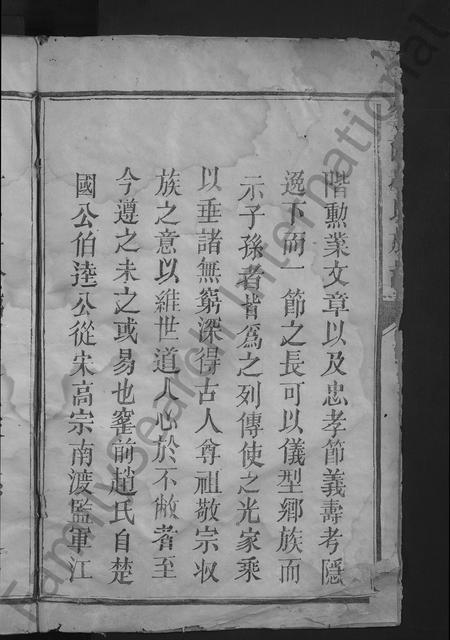 階勲業文章以及忠孝節義壽考隱
逸下而一節之長可以儀型鄉族而
示子孫者皆爲之列傳使之光家乘
以垂諸無窮深得古人尊祖敬宗収
族之意以維世道人心於不敝者至
今遵之未之或易也窪前趙氏自楚
國公伯逵公從宋高宗南渡監軍江
FamilySearch International